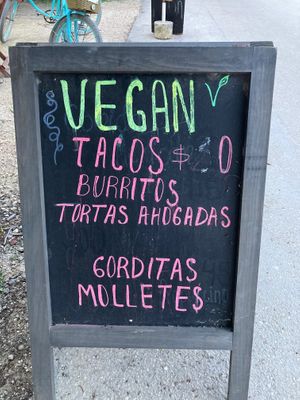 VEGAN
TACOS $20
BURRITOS
TORTAS AHOGADAS
GORDITAS
MOLLETE$